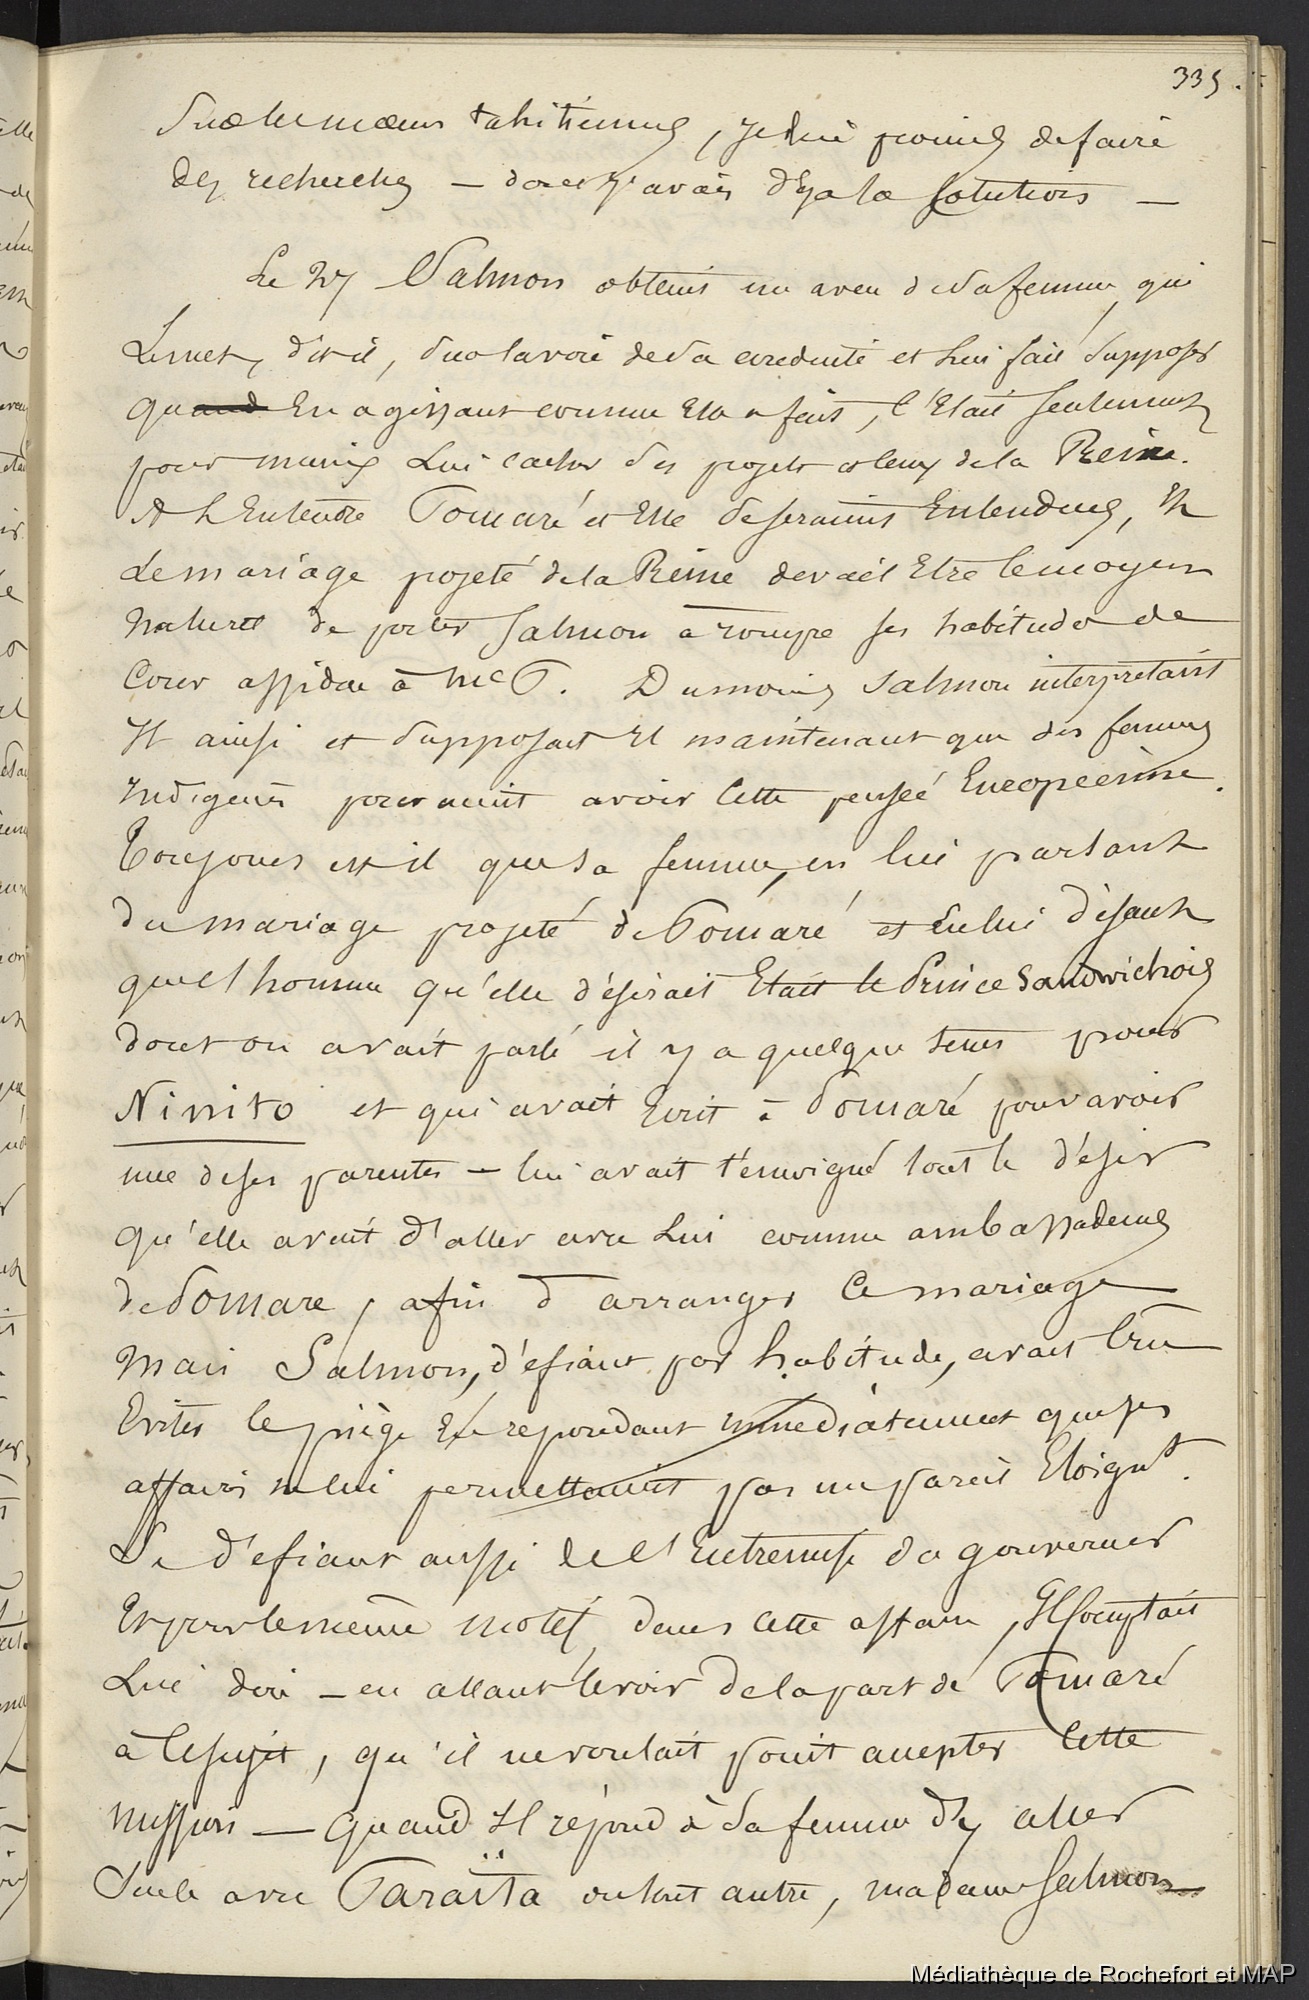 335.
sur les mœurs tahitiennes, je lui promis de faire
des recherches — dont j'avais déja la solution —
Le 27 Salmon obtenis un aveu de sa femme, qui
Le met, dit-il, sur la voie de sa et lui fait supposer
qu en agissant comme Elle a fait, c'Etait seulement
pour mieux Lui cacher ses projets et ceux de la Reine.
A L'Entendre Pomaré et Elle se seraient Entendues, Et
Le mariage projeté de la Reine devait Etre le moyen
naturel de porter Salmon à rompre ses habitudes de
Cour assidue à Me P. Du moins Salmon interpretait
Il ainsi et supposait Il maintenant que des femmes
Indigenes pouvaient avoir cette pensée Européenne.
Toujours est il que sa femme, en lui parlant
du mariage projeté de Pomaré et en lui désant
que l'homme qu'elle désirait Etait le Prince Sandwichois
dont on avait parlé il y a quelque tems pour
Ninito et qui avait Ecrit à Pomaré pour avoir
une de ses parentes — lui avait témoigné tout le désir
qu'elle avait d'aller avec Lui comme ambassadeurs
de Pomare, afin d'arranger ce mariage
Mais Salmon, défiant par habitude, avait Cru
Eviter le piège En repondant immédiatement que ses
affaires ne lui permettaient pas un pareil Eloignt.
Se défiant aussi de l'Entremise du gouverneur
Et par le même motif, dans cette affaire, Il comptait
Lui dire — en allant le voir de la part de Pomaré
à ce sujet, qu'il ne voulait point accepter cette
mission — quand Il répond à sa femme d'y aller
Seule avec Taraïta ou tout autre, madame Salmon
Médiathèque de Rochefort et MAP